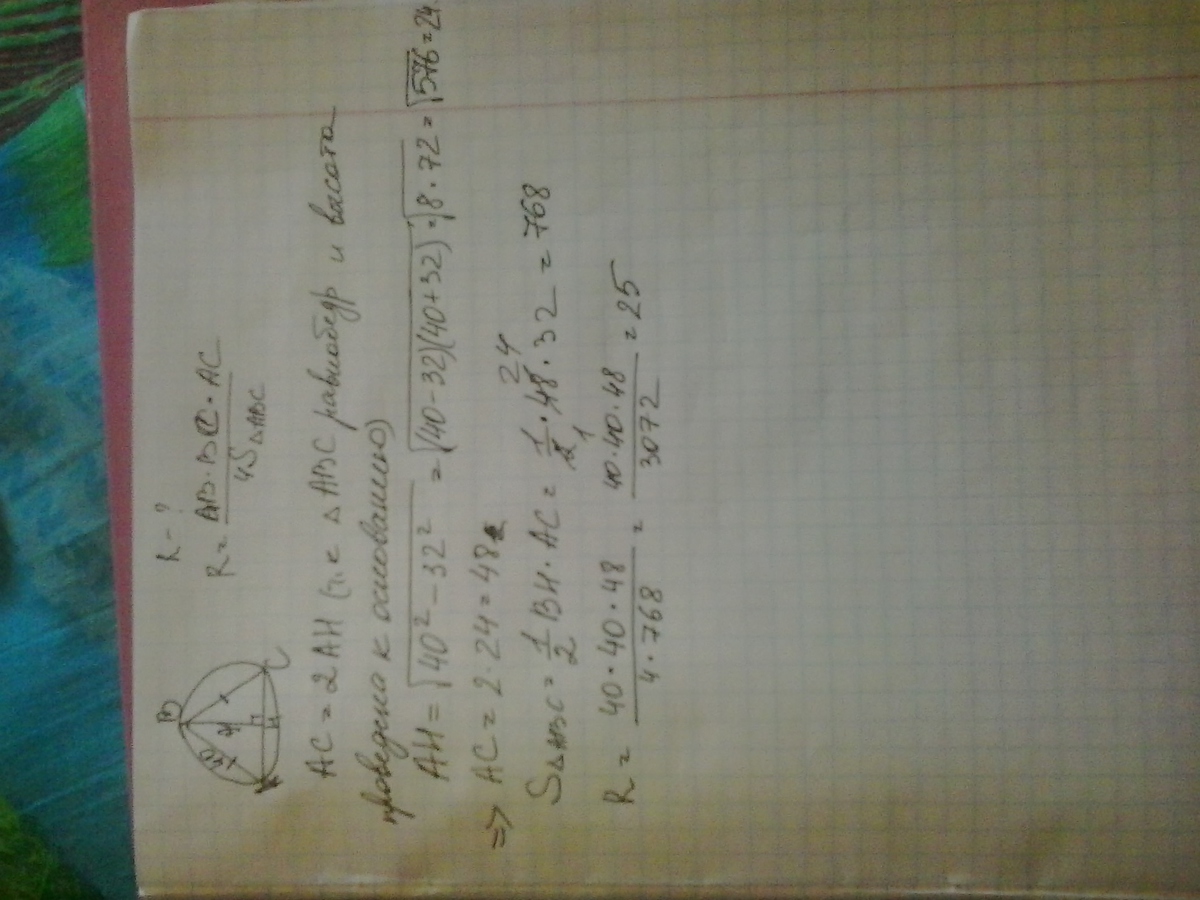 R - ?
R = AB · BC · AC / 4S△ABC
B
C
H
AC = 2AH (т. к △ABC равнобедр и высота
проведена к основанию)
AH = √40² - 32² = √(40-32)(40+32) = √8 · 72 = √576 = 24.
=> AC = 2 · 24 = 48
S△ABC = 1/2 BH · AC = 1/2 · 48 · 32 = 768
24
1
R = 40 · 40 · 48 / 4 · 768 = 40 · 40 · 48 / 3072 = 25